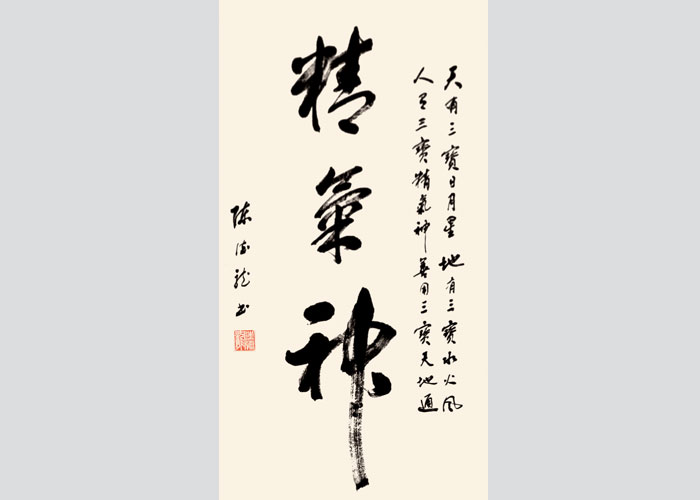 天有三寶日月星 地有三寶水火風
人有三寶精氣神 善用三寶天地通
精氣神
陳 龍書